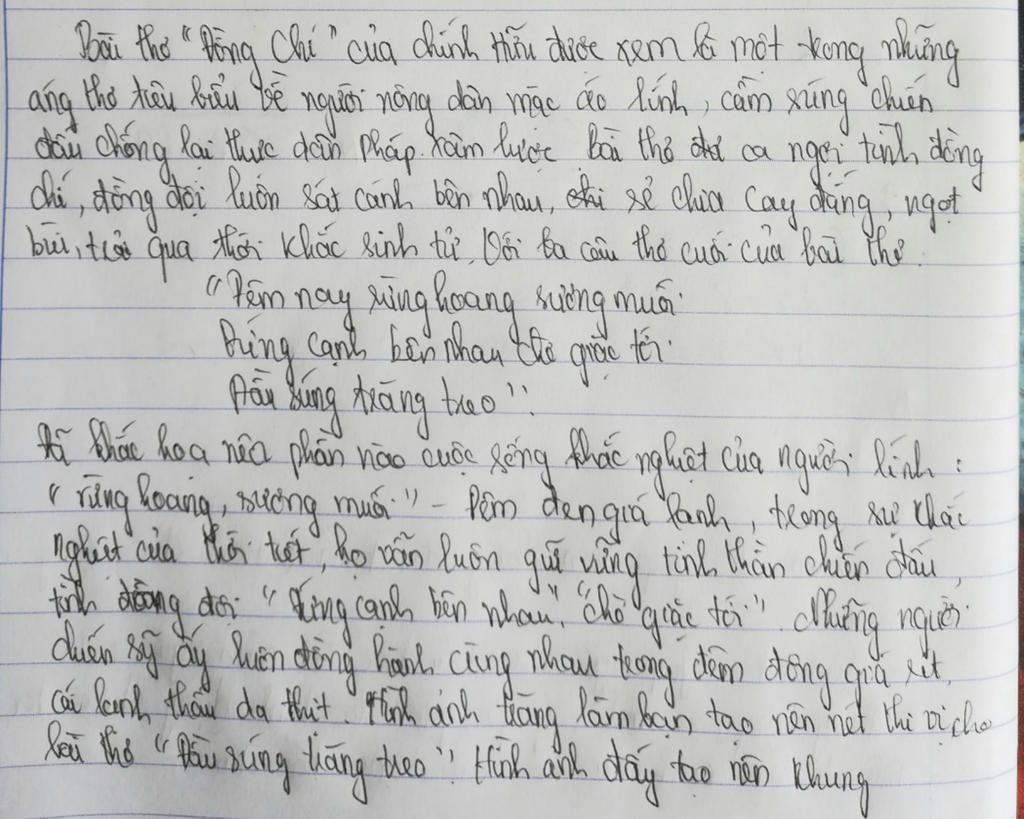 Bài thơ "Đồng Chí" của Chính Hữu được xem là một trong những
áng thơ tiêu biểu về người nông dân mặc áo lính, cầm súng chiến
đấu chống lại thực dân Pháp xâm lược. Bài thơ đã ca ngợi tình đồng
chí, đồng đội luôn sát cánh bên nhau, sẻ chia cay đắng, ngọt
bùi, trải qua thời khắc sinh tử. Với ba câu thơ cuối của bài thơ.
"Đêm nay rừng hoang sương muối
Đứng cạnh bên nhau chờ giặc tới
Đầu súng trăng treo".
Đã khắc họa nên phần nào cuộc sống khắc nghiệt của người lính:
"rừng hoang, sương muối" - Đêm đen giá lạnh, trong sự khắc
nghiệt của thời tiết, họ vẫn luôn giữ vững tinh thần chiến đấu,
tình đồng đội "Đứng cạnh bên nhau", "chờ giặc tới". Những người
chiến sỹ ấy luôn đồng hành cùng nhau trong đêm đông giá rét,
cái lạnh thấu da thịt. Hình ảnh trăng làm bạn tạo nên nét thi vị cho
bài thơ "Đầu súng trăng treo". Hình ảnh đấy tạo nên khung